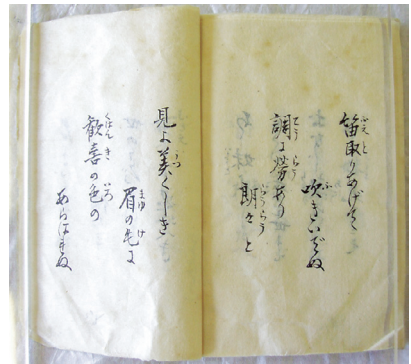 笛取りあげて
吹きいでぬ
調に労あり
朗々と
見よ美くしき
眉の毛に
歓喜の色の
あらはれぬ